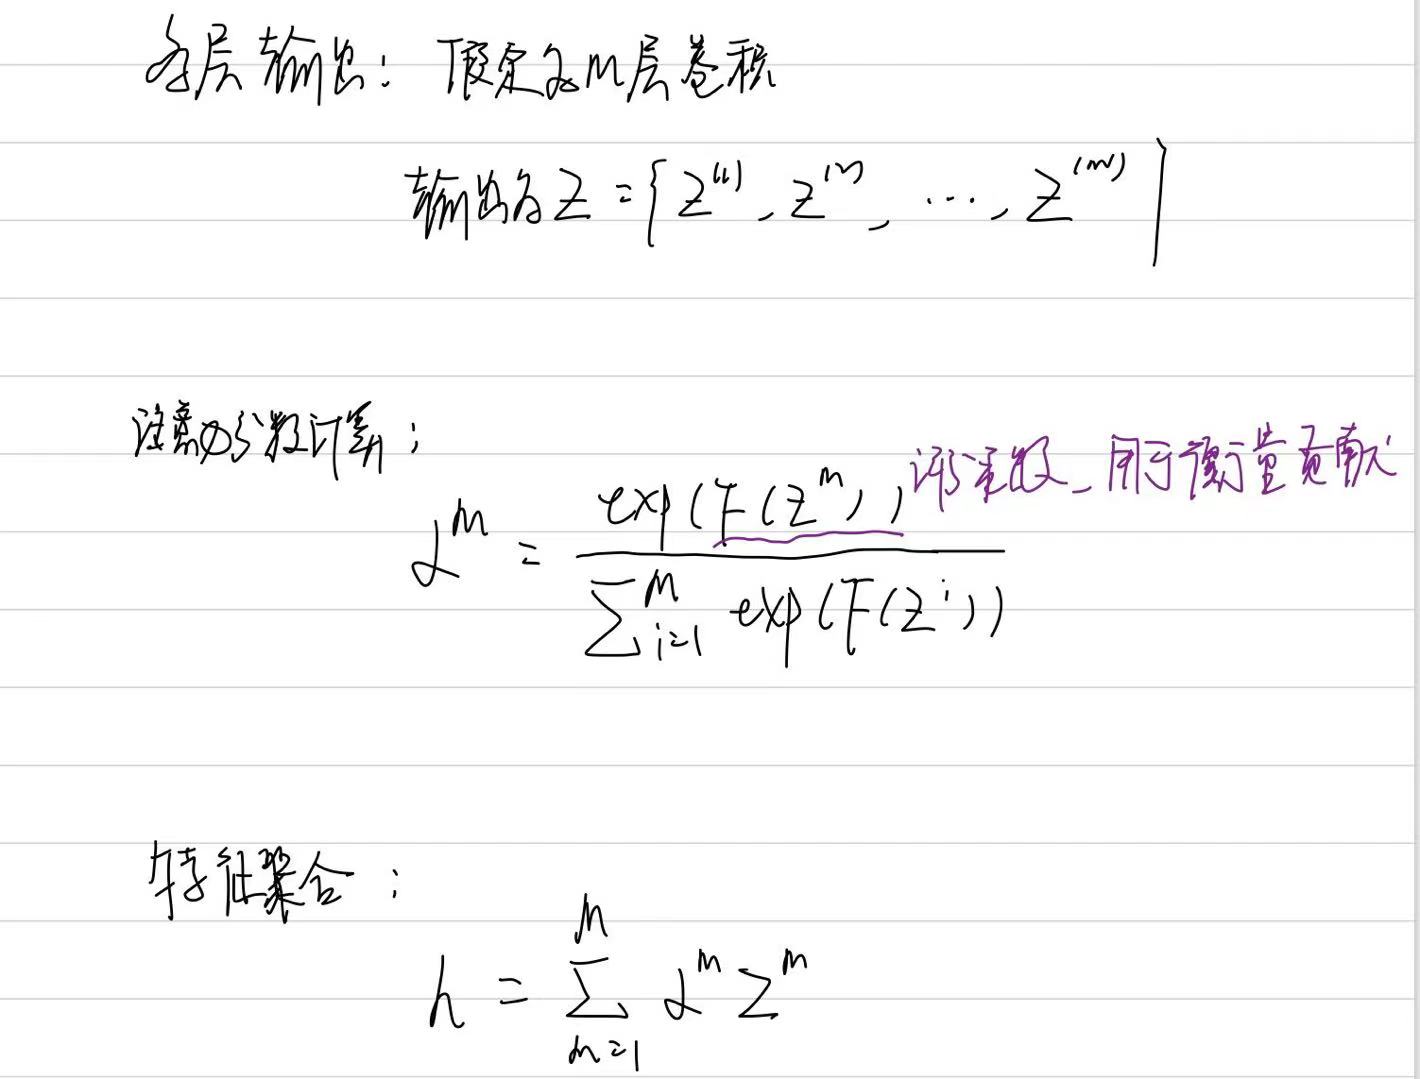 各层输出：假定为M层卷积
输出为Z = {Z^(1), Z^(2), ..., Z^(m)}
注意力分数计算：
α^m = exp(F(Z^m)) / ∑_{i=1}^M exp(F(Z^i))
评分函数_用于衡量贡献
特征聚合：
h = ∑_{m=1}^M α^m Z^m